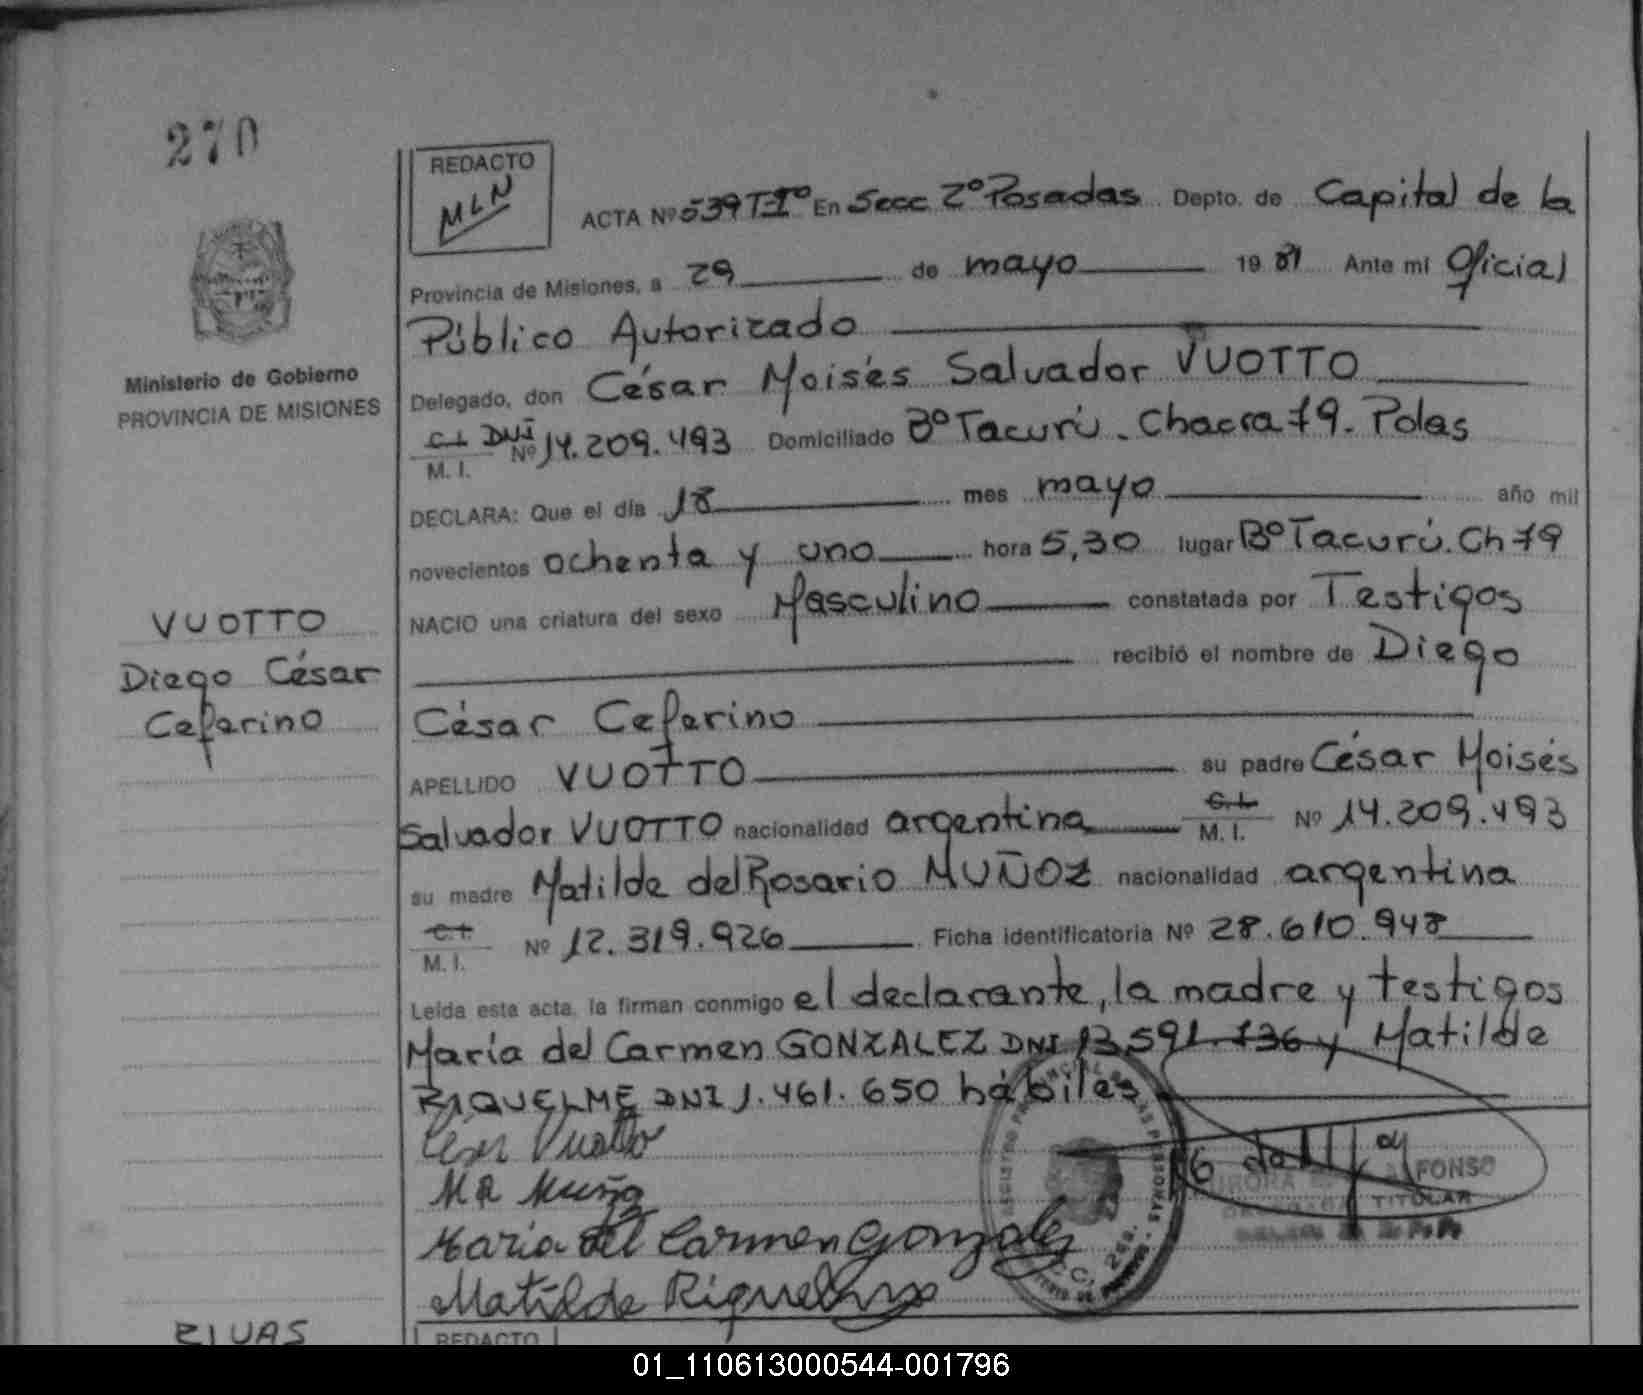 270
REDACTO
MLN
ACTA Nº 539 T-1º En Secc 2º Posadas Depto. de Capital de la
Provincia de Misiones, a 29 de mayo 19 81 Ante mi Oficial
Público Autorizado
Ministerio de Gobierno
PROVINCIA DE MISIONES
Delegado, don César Moisés Salvador VUOTTO
C.I. DNI
M. I. Nº 14.209.493 Domiciliado Bº Tacurú. Chacra 79. Pdas
DECLARA: Que el día 18 mes mayo año mil
novecientos ochenta y uno hora 5,30 lugar Bº Tacurú. Ch 79
NACIO una criatura del sexo Masculino constatada por Testigos
recibió el nombre de Diego
VUOTTO
Diego César
Ceferino
César Ceferino
APELLIDO VUOTTO su padre César Moisés
Salvador VUOTTO nacionalidad argentina C.I. M. I. Nº 14.209.493
su madre Matilde del Rosario MUÑOZ nacionalidad argentina
C.I. M. I. Nº 12.319.926 Ficha identificatoria Nº 28.610.948
Leída esta acta, la firman conmigo el declarante, la madre y testigos
María del Carmen GONZALEZ DNI 13.591.736 y Matilde
RIQUELME DNI 1.461.650 hábiles
César Vuotto
MR Muñoz
María del Carmen Gonzalez
Matilde Riquelme
FONSO
TITULAR
RIVAS
REDACTO
01_110613000544-001796